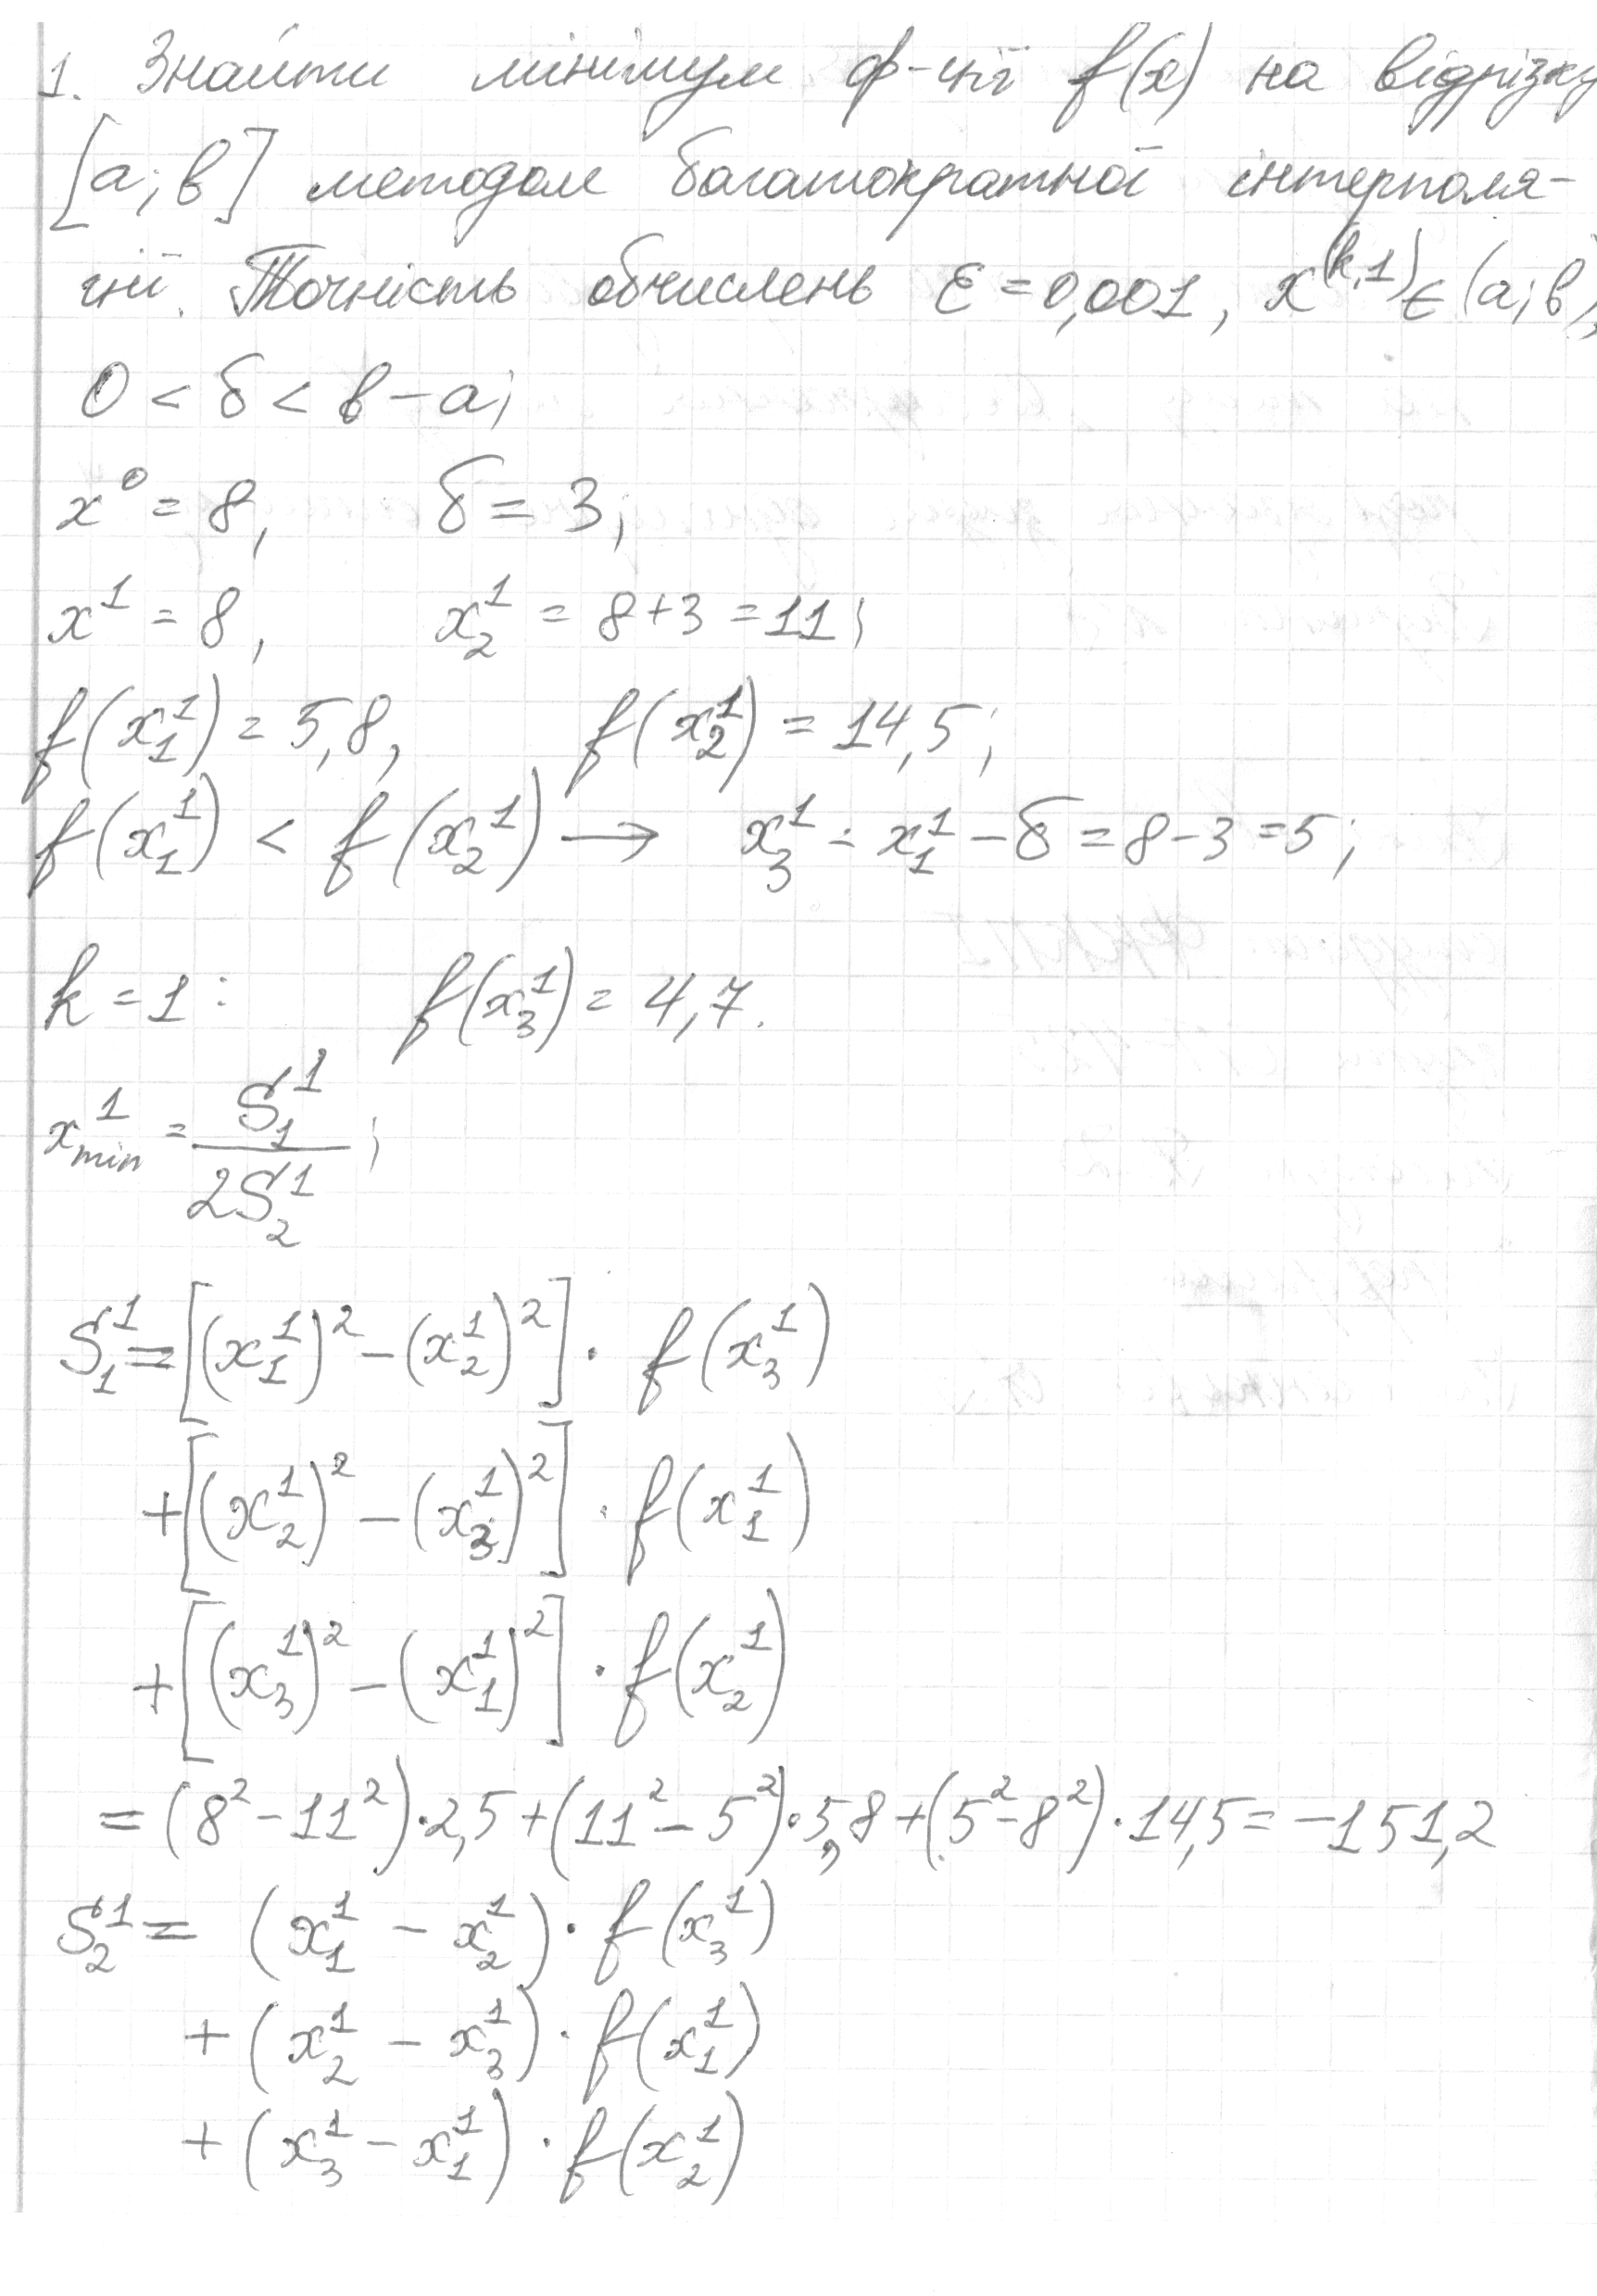 1. Знайти мінімум ф-ції f(x) на відрізку
[a; b] методом багатократної інтерполя-
ції. Точність обчислень ε = 0,001, x^(k,1) ∈ (a; b),
0 < δ < b - a;
x^0 = 8, δ = 3;
x^1 = 8, x_2^1 = 8 + 3 = 11;
f(x_1^1) = 5,8, f(x_2^1) = 14,5;
f(x_1^1) < f(x_2^1) → x_3^1 = x_1^1 - δ = 8 - 3 = 5;
k = 1: f(x_3^1) = 4,7.
x_min^1 = S_1^1 / 2S_2^1;
S_1^1 = [(x_1^1)^2 - (x_2^1)^2] · f(x_3^1)
+ [(x_2^1)^2 - (x_3^1)^2] · f(x_1^1)
+ [(x_3^1)^2 - (x_1^1)^2] · f(x_2^1)
= (8^2 - 11^2) · 2,5 + (11^2 - 5^2) · 5,8 + (5^2 - 8^2) · 14,5 = -151,2
S_2^1 = (x_1^1 - x_2^1) · f(x_3^1)
+ (x_2^1 - x_3^1) · f(x_1^1)
+ (x_3^1 - x_1^1) · f(x_2^1)